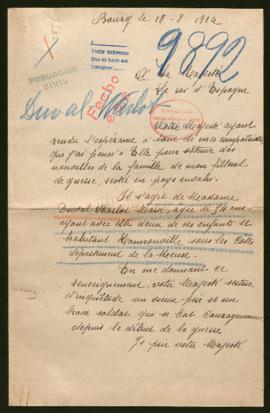 Bourg le 18-8 1916
9892
A Sa Majesté
Le roi d'Espagne
POBLACION
CIVIL
Fecho
Duval Charlot
Votre Majesté ayant
rendu l'espérance à l'une de mes compatriotes
que j'ai pensé à Elle pour obtenir des
nouvelles de la famille de mon filleul
de guerre, resté en pays envahi.
Il s'agit de Madame
Duval Charlot Marie, âgée de 34 ans,
ayant avec elle deux de ses enfants et
habitant Hannonville sous les Côtes
département de la Meuse.
En me donnant ce
renseignement, votre Majesté sortira
d'inquiétude un père et un
brave soldat qui se bat courageusement
depuis le début de la guerre
Je prie votre Majesté